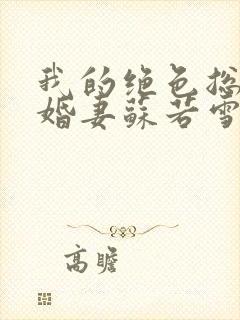 我的绝色总
婚妻苏若雪
高瞻